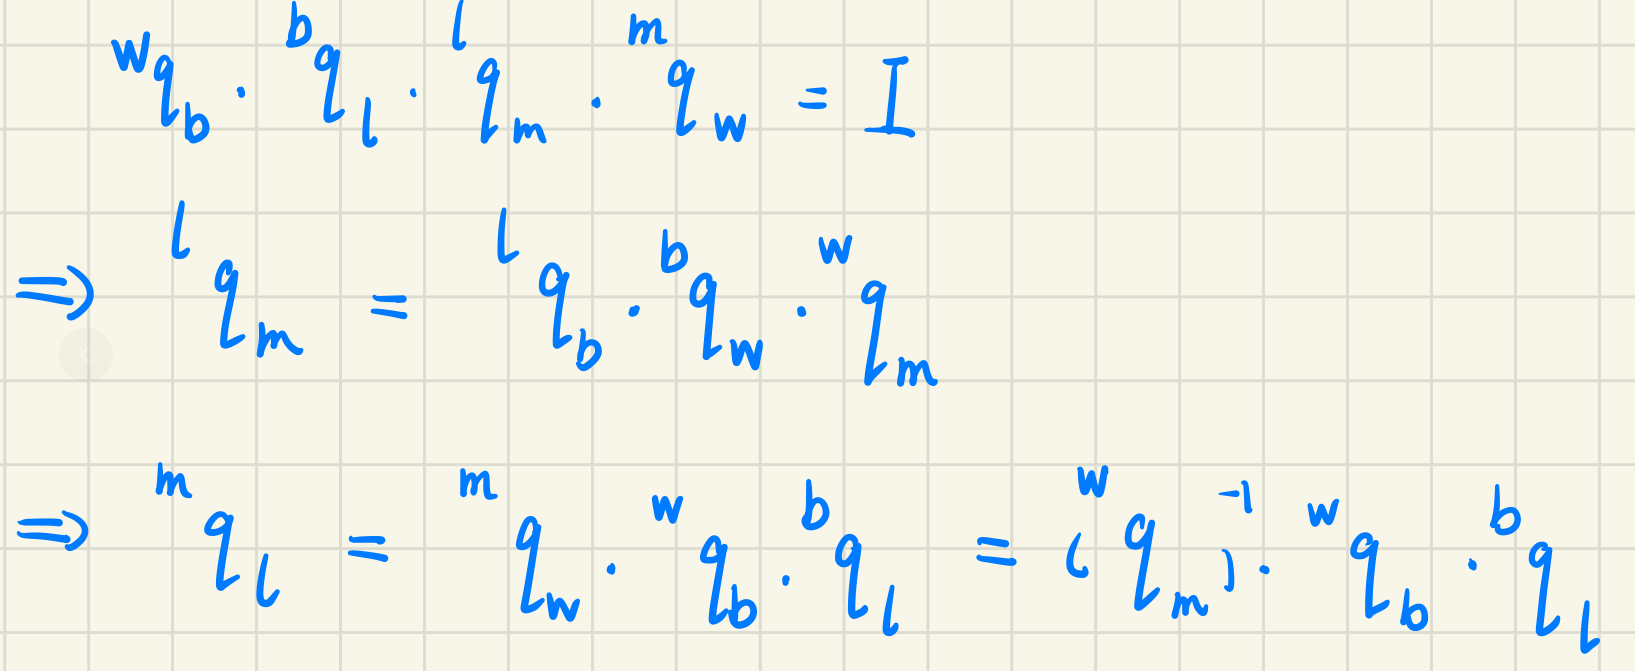 ʷq_b · ᵇq_l · ˡq_m · ᵐq_w = I
⇒ ˡq_m = ˡq_b · ᵇq_w · ʷq_m
⇒ ᵐq_l = ᵐq_w · ʷq_b · ᵇq_l = (ʷq_m)⁻¹ · ʷq_b · ᵇq_l